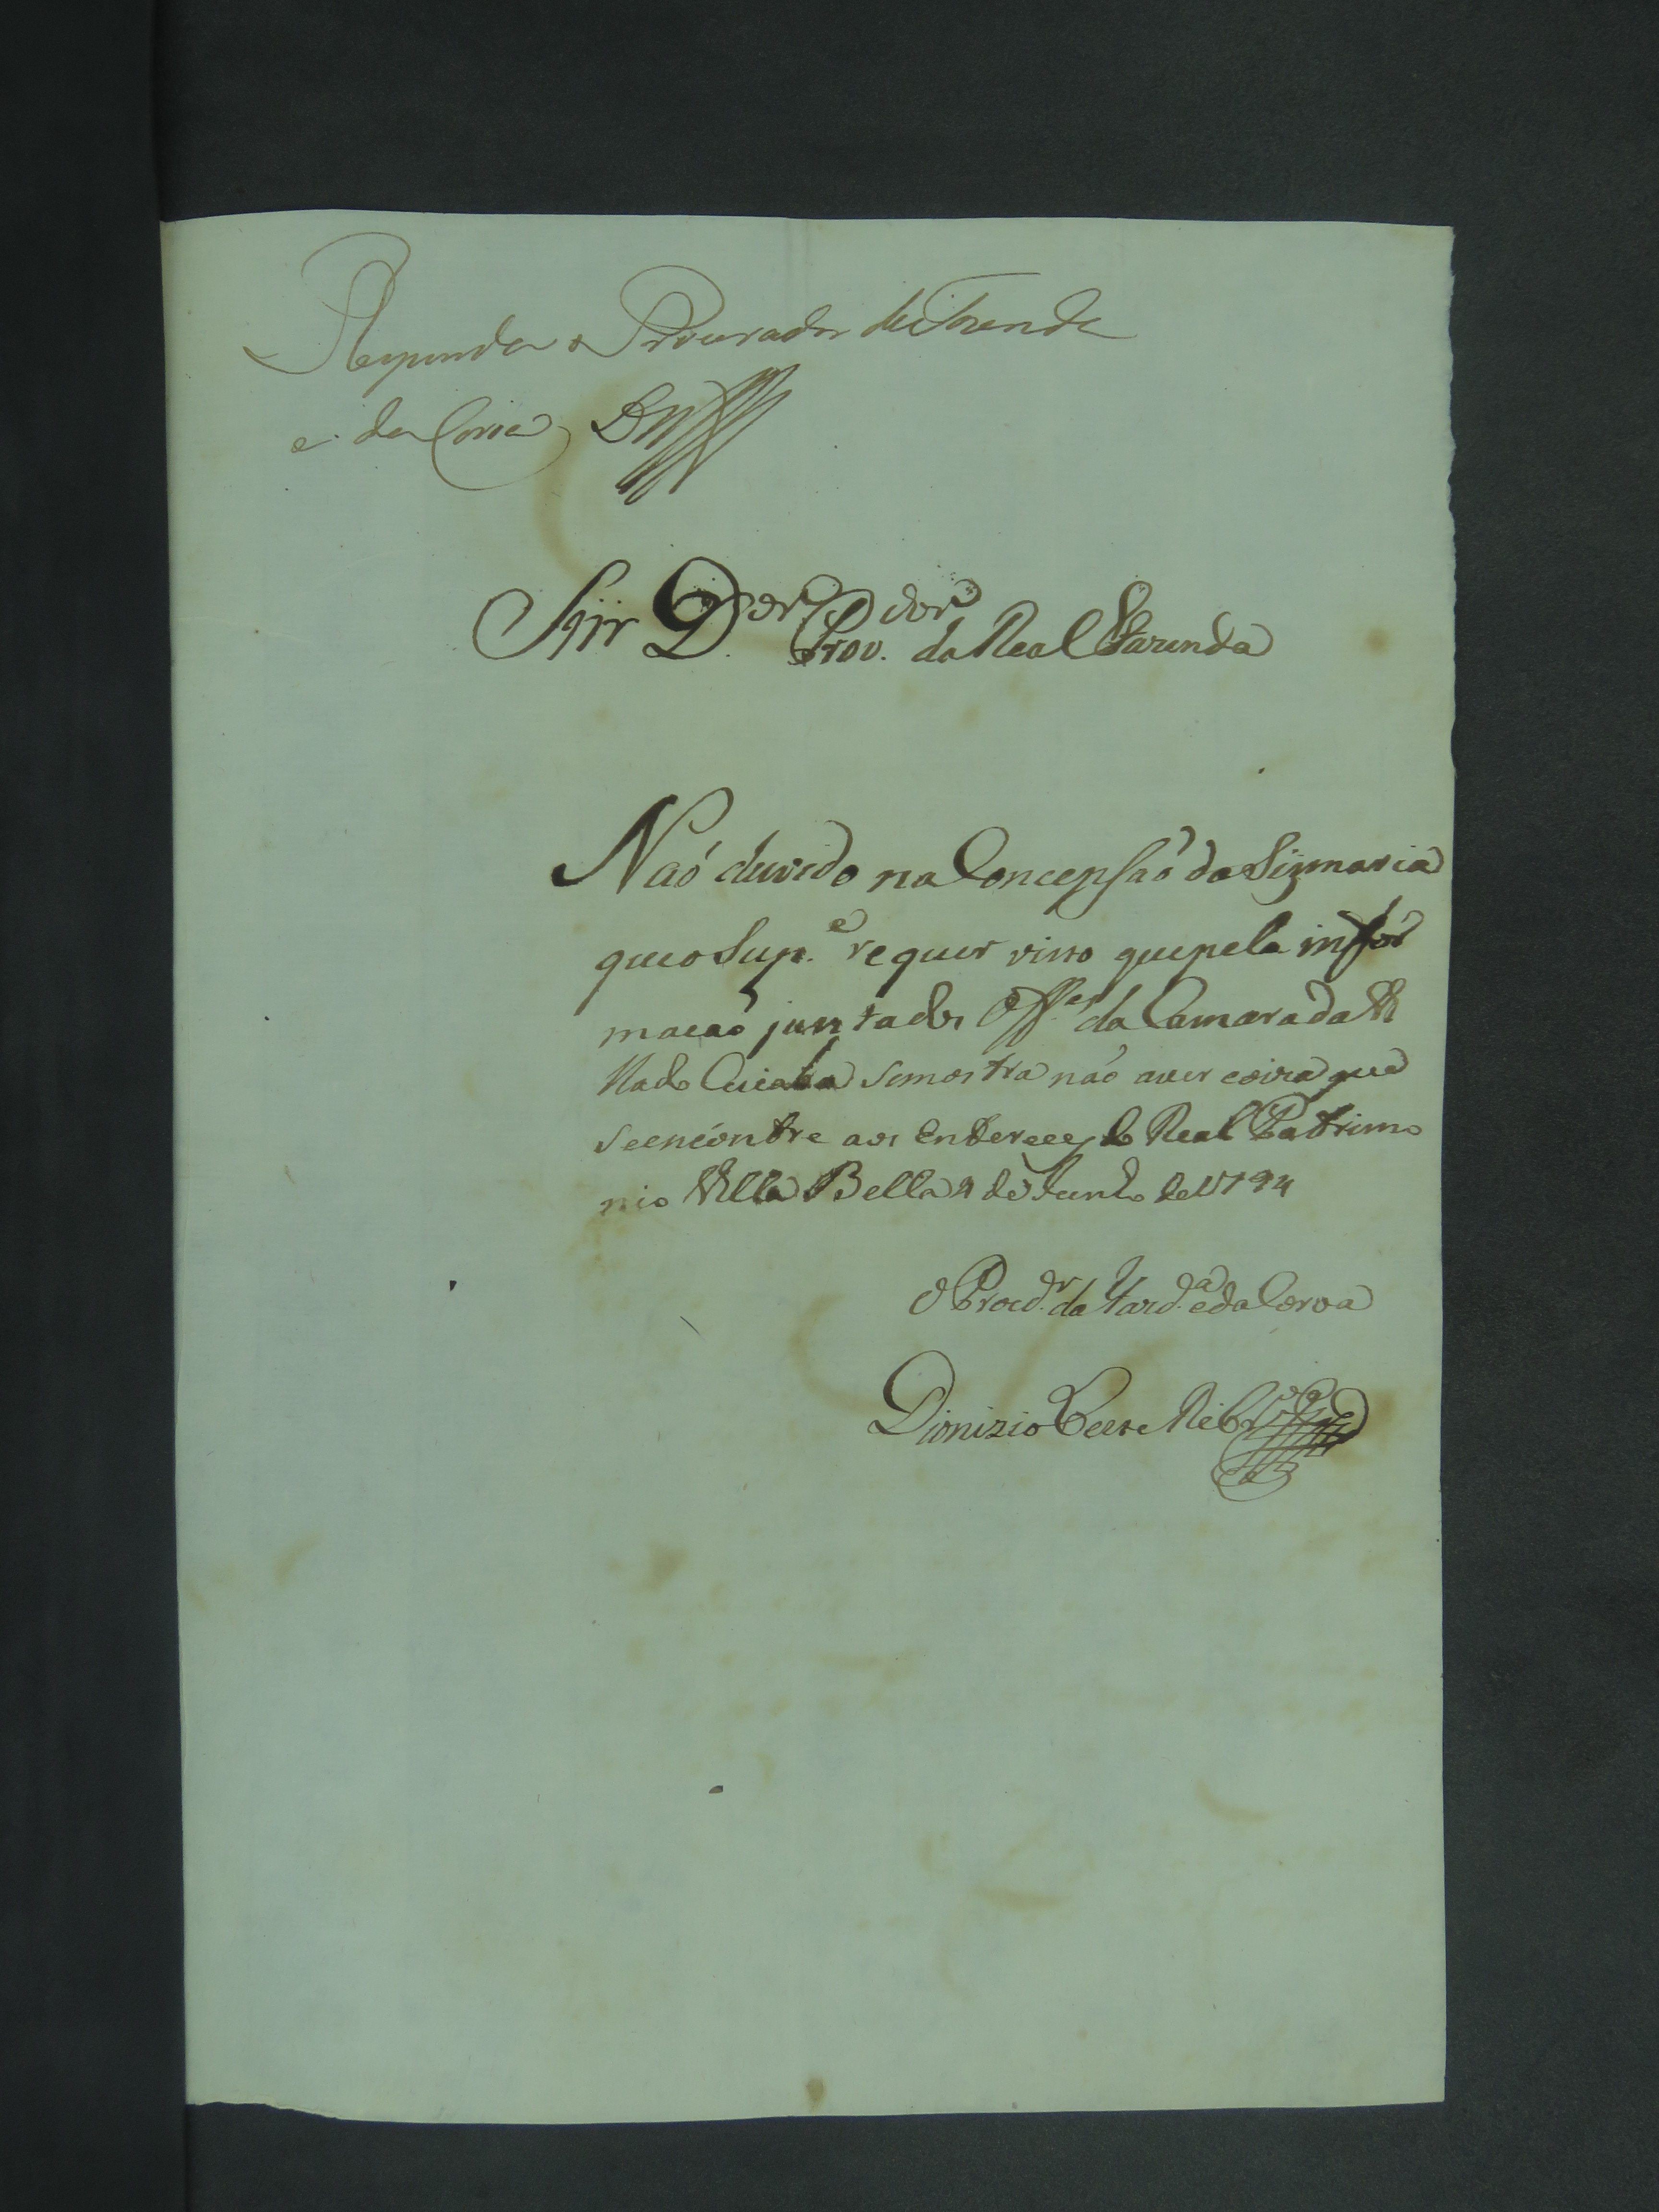 Responda o Procurador da Fazenda
e da Coroa
Snr Dor Provdor da Real Fazenda
Naó duvido na Concepsaó da Sizmaria
que o Supe requer visto que pela infor
macaó junta dos Offes da Camara da Vi
lla do Cuiaba se mostra naó aver coiza que
se encontre aos Entereces do Real Patrimo
nio Villa Bella 9 de Junho de 1794
O Procdr da Fazda e da Coroa
Dionizio